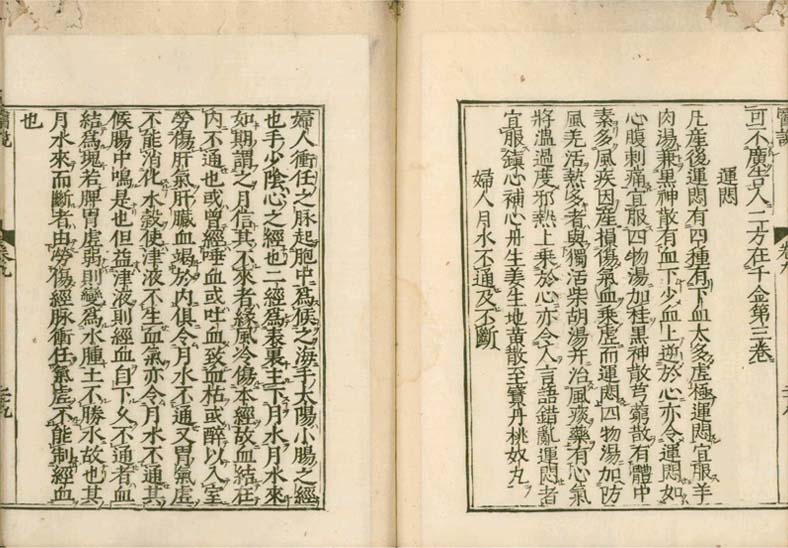 可不廣告人二方在千金第三卷
運悶
凡產後運悶有四種有下血太多虛極運悶宜服羊
肉湯兼黑神散有血下少血上逆於心亦令運悶如
心腹刺痛宜服四物湯加桂黑神散芎藭散有體中
素多風疾因產損傷氣血乘虛而運悶四物湯加防
風羌活熱多者與獨活柴胡湯并治風痰藥有心氣
將溫過度邪熱上乘於心亦令人言語錯亂運悶者
宜服鎮心補心丹生姜生地黃散至寶丹桃奴丸
婦人月水不通及不斷
婦人衝任之脉起胞中為經候之海手太陽小腸之經
也手少陰心之經也二經為表裏主下月水月水來
如期謂之月信其不來者緣風冷傷本經故血結在
內不通也或曾經唾血或吐血致血枯或醉以入室
勞傷肝氣肝臟血竭於內俱令月水不通又胃氣虛
不能消化水穀使津液不生血氣亦令月水不通其
候腸中鳴是也但益津液則經血自下久不通者血
結為塊若脾胃虛弱則變為水腫土不勝水故也其
月水來而斷者由勞傷經脉衝任氣虛不能制經血
也